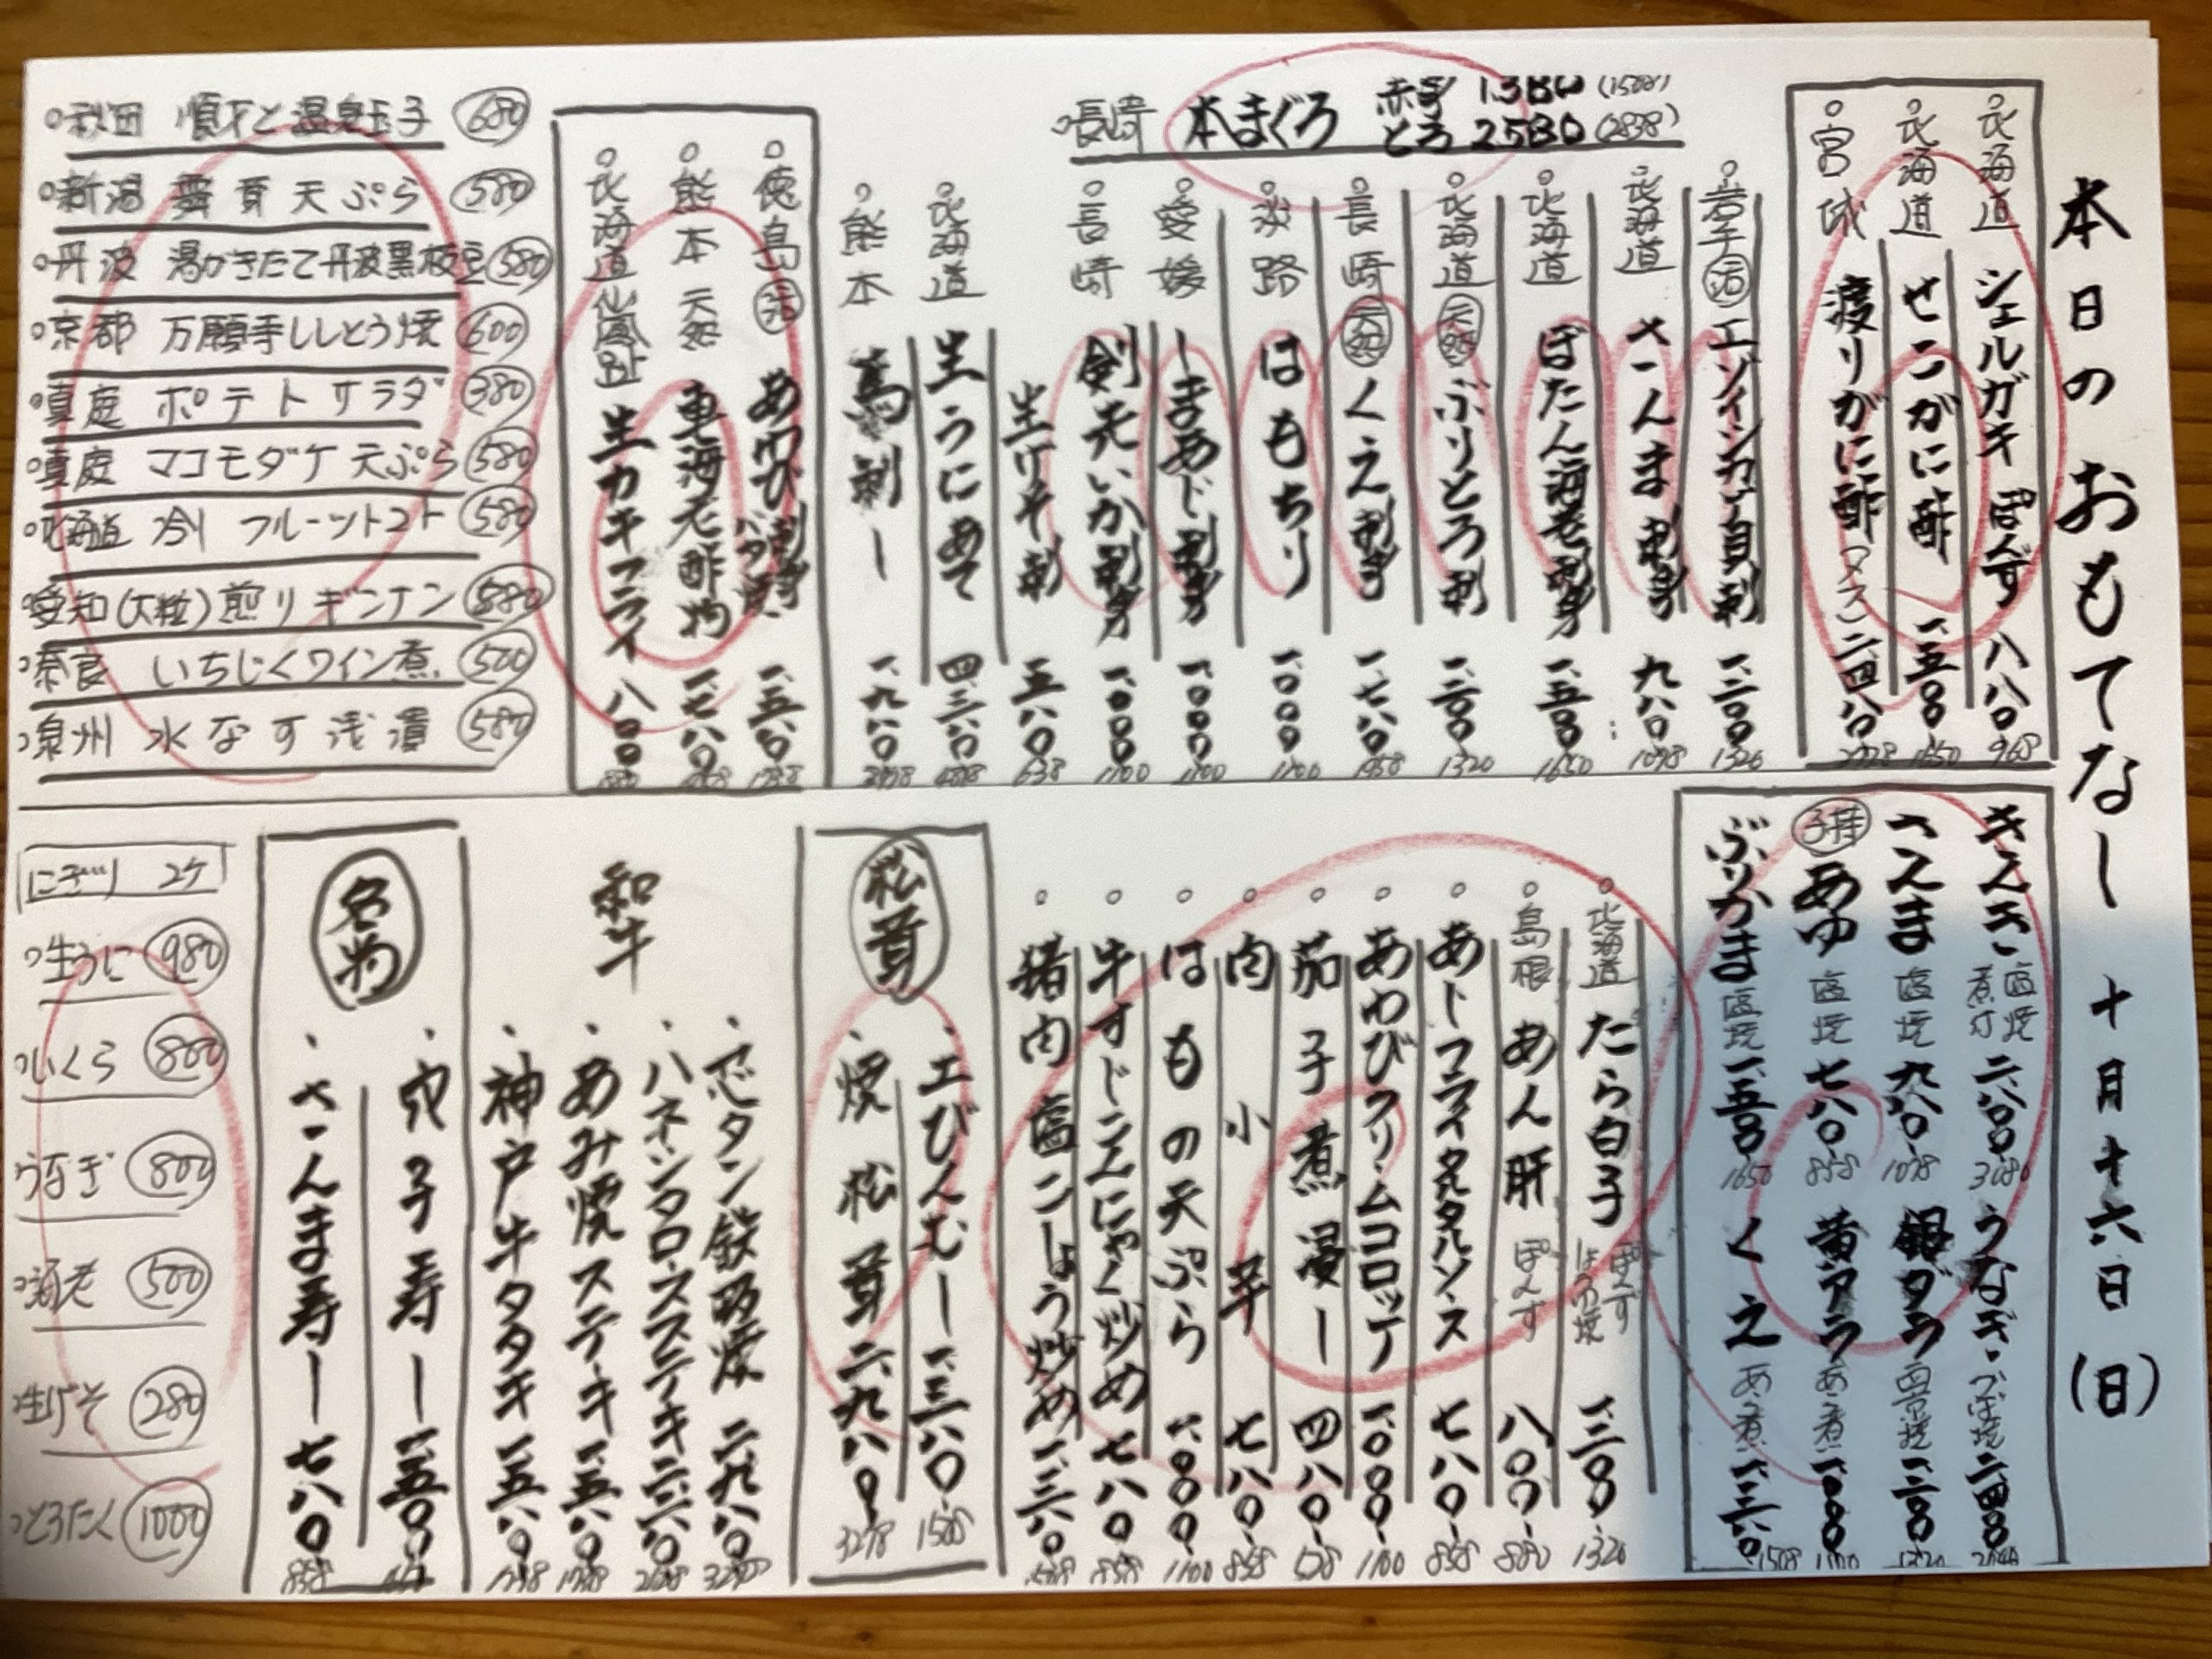 本日のおもてなし 十月十六日(日)
北海道 シェルガキ ぽんず 八八〇 968
北海道 せこがに酢 一、五〇〇 1650
宮城 渡りがに酢(メス) 二、四八〇 2728
長崎 本まぐろ 赤身 1380 (1508)
とろ 2580 (2838)
岩手 活 エゾイシカゲ貝刺 一、二〇〇 1320
北海道 さんま刺身 九八〇 1078
北海道 ぼたん海老刺身 一、五〇〇 1650
北海道 天然 ぶりとろ刺 一、二〇〇 1320
長崎 天然 くえ刺身 一、七八〇 1958
淡路 はもちり 一、〇〇〇 1100
愛媛 しまあじ刺身 一、〇〇〇 1100
長崎 剣先いか刺身 一、〇〇〇 1100
生げそ刺 五八〇 638
北海道 生うにあて 四、三八〇
熊本 馬刺し 一、九八〇
徳島 活 あわび 刺身 バタ焼 一、五八〇 1738
熊本 天然 車海老酢物 一、七八〇 1958
北海道 仙鳳趾 生カキフライ 八〇〇 880
秋田 順才と温泉玉子 680
新潟 舞茸天ぷら 580
丹波 湯がきたて丹波黒枝豆 580
京都 万願寺ししとう焼 600
真庭 ポテトサラダ 380
真庭 マコモダケ天ぷら 580
北海道 冷しフルーツトマト 580
愛知(大粒)煎りギンナン 580
奈良 いちじくワイン煮 500
泉州 水なす浅漬 580
きんき 塩焼 煮付 二、八〇〇 3080
さんま 塩焼 九八〇 1078
子持 あゆ 塩焼 七八〇 858
ぶりかま 塩焼 一、五〇〇 1650
うなぎ かば焼 二、四〇〇 2640
銀ダラ 西京焼 一、二〇〇 1320
黄アラ あら煮 一、〇〇〇 1100
くえ あら煮 一、三八〇 1508
北海道 たら白子 ぽんず しょうゆ焼 一、二〇〇 1320
島根 あん肝 ぽんず 八〇〇 880
あじフライタルタルソース 七八〇 858
あわびクリームコロッケ 一、〇〇〇 1100
茄子煮浸し 四八〇 528
肉小芋 七八〇 858
はもの天ぷら 一、〇〇〇 1100
牛すじこんにゃく炒め 七八〇 858
猪肉塩こしょう炒め 一、三八〇
松茸
土びんむし 一、三八〇 1508
焼松茸 二、九八〇 3278
和牛
芯タン鉄板焼 二、九八〇
ハネシタロースステーキ
あみ焼ステーキ 一、五八〇 1738
神戸牛タタキ 一、五八〇 1738
名物
穴子寿し 一、五〇〇
さんま寿し 七八〇 858
にぎり 2ケ
生うに 980
いくら 800
うなぎ 800
海老 500
生げそ 280
とろたく 1000